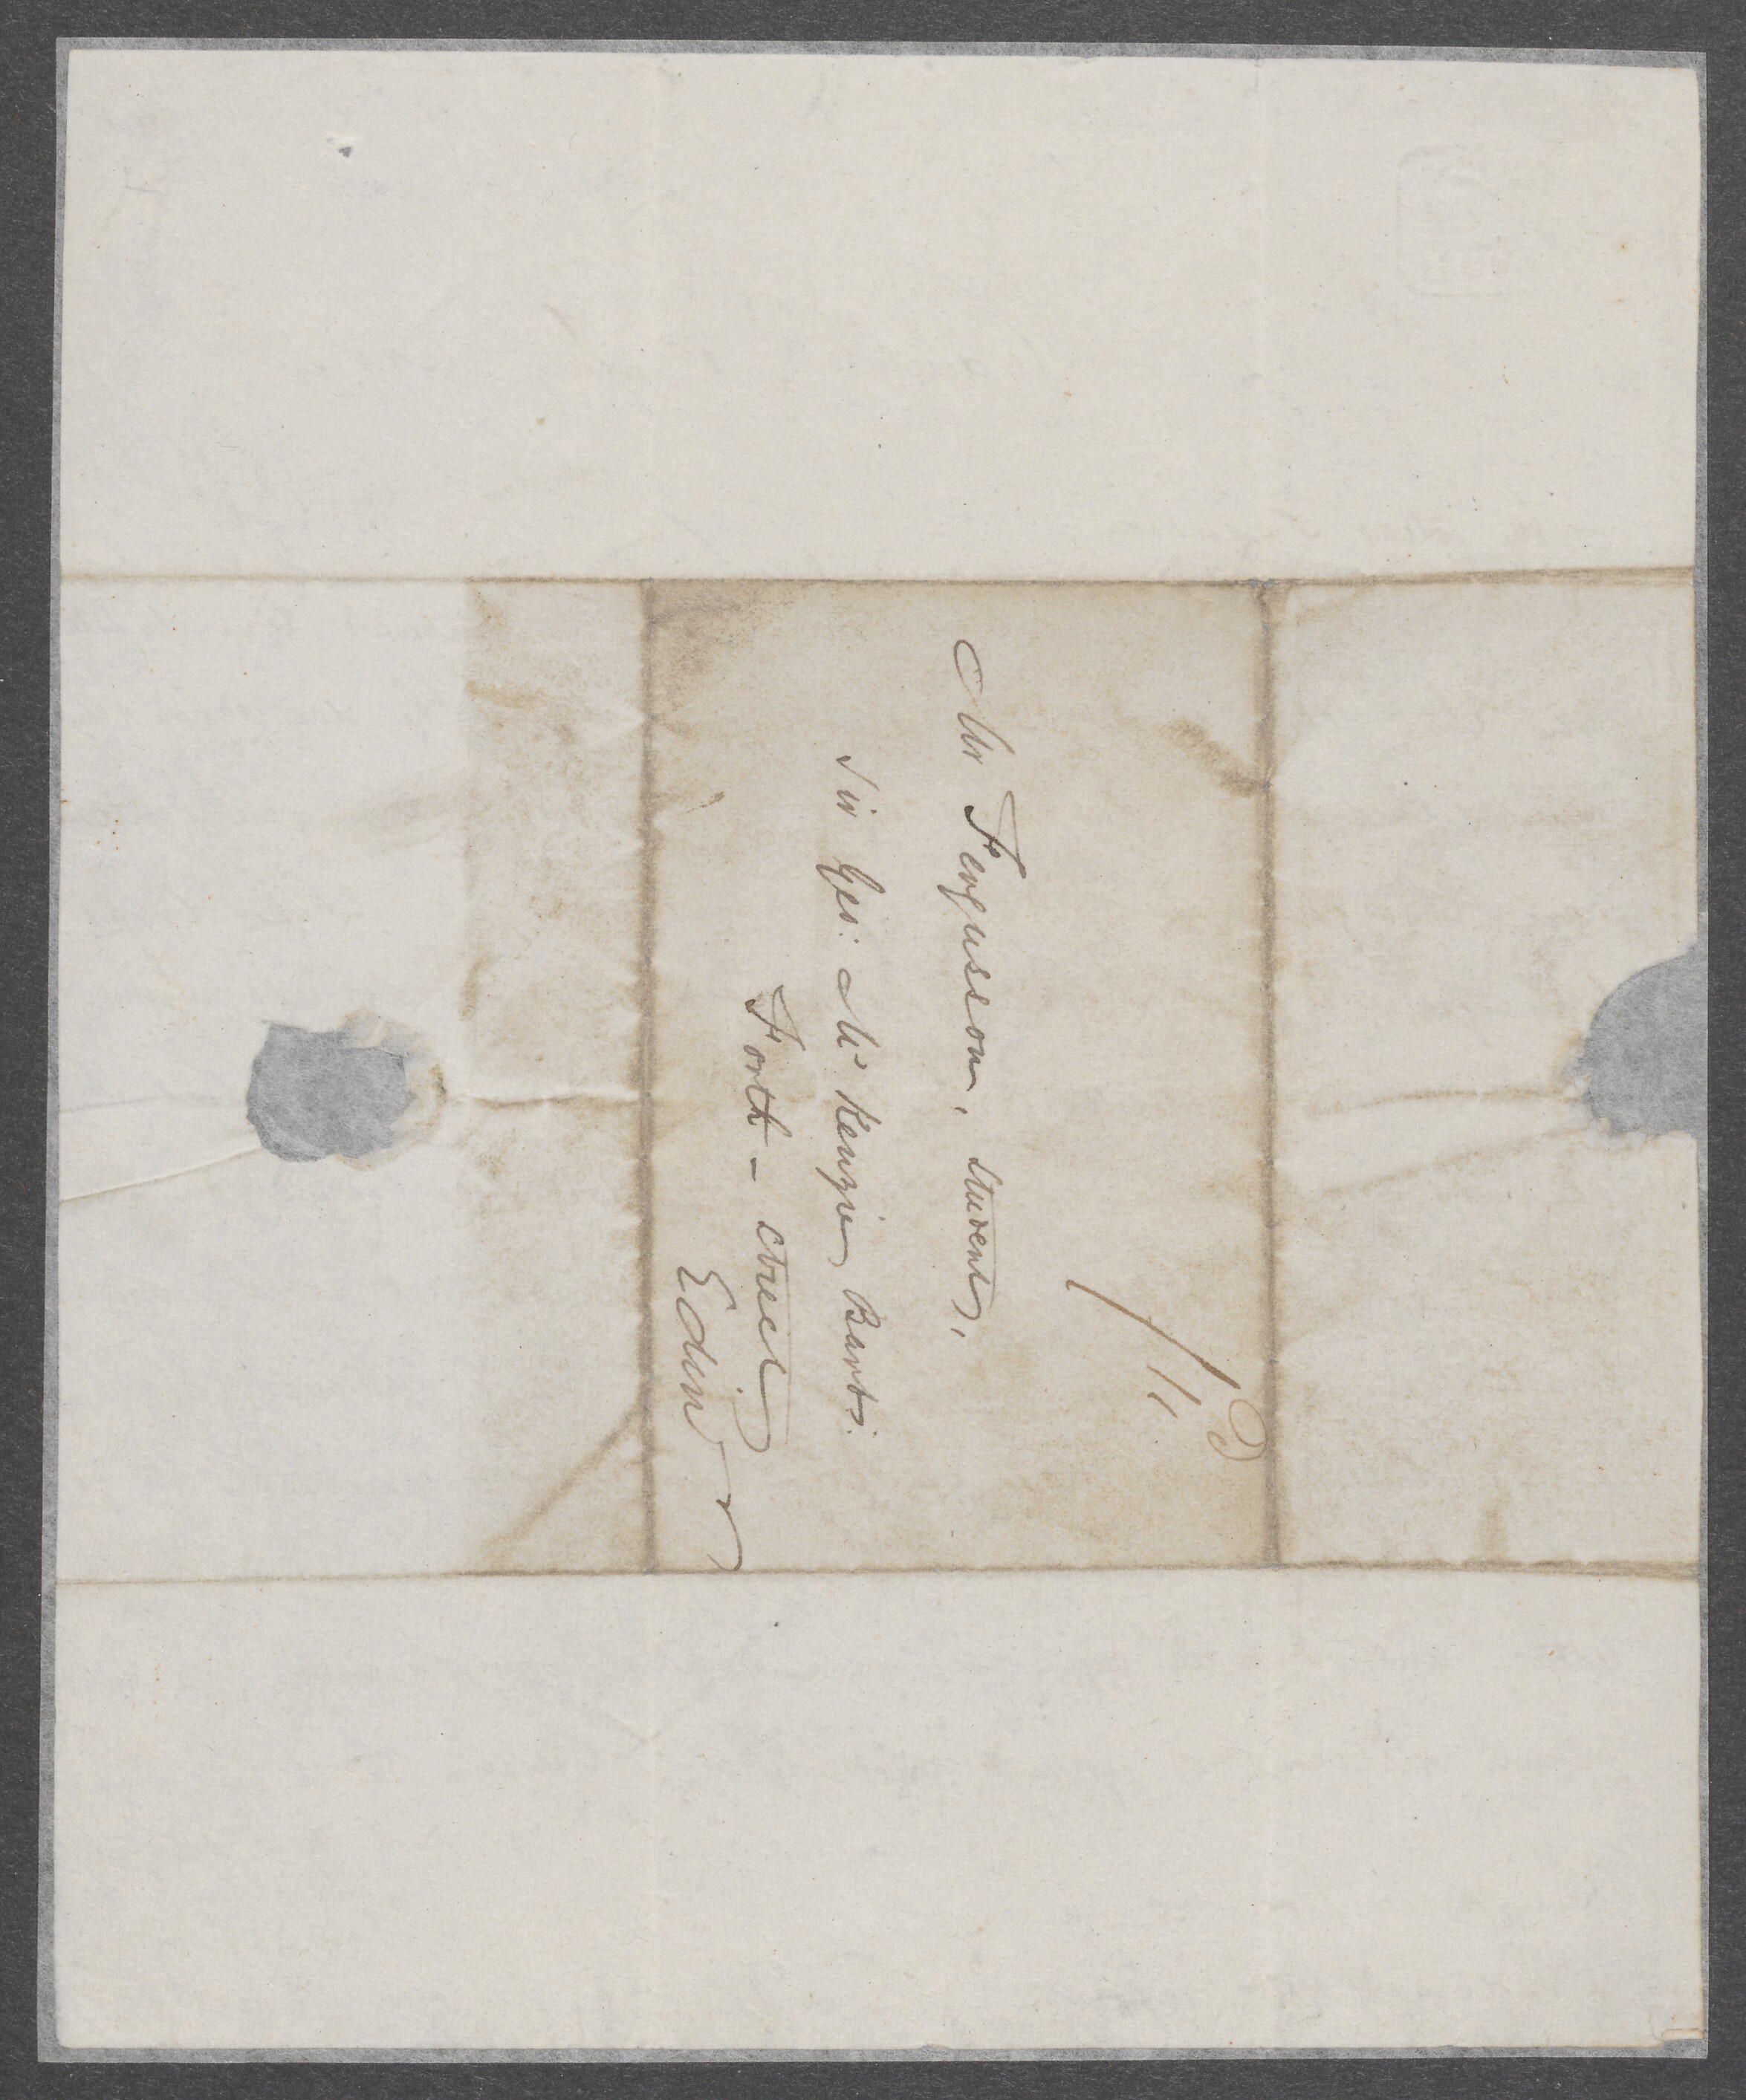 Mr Fergusson, Student,
Sir Geo: McKenzie Bart:
Forth - street
Edinr